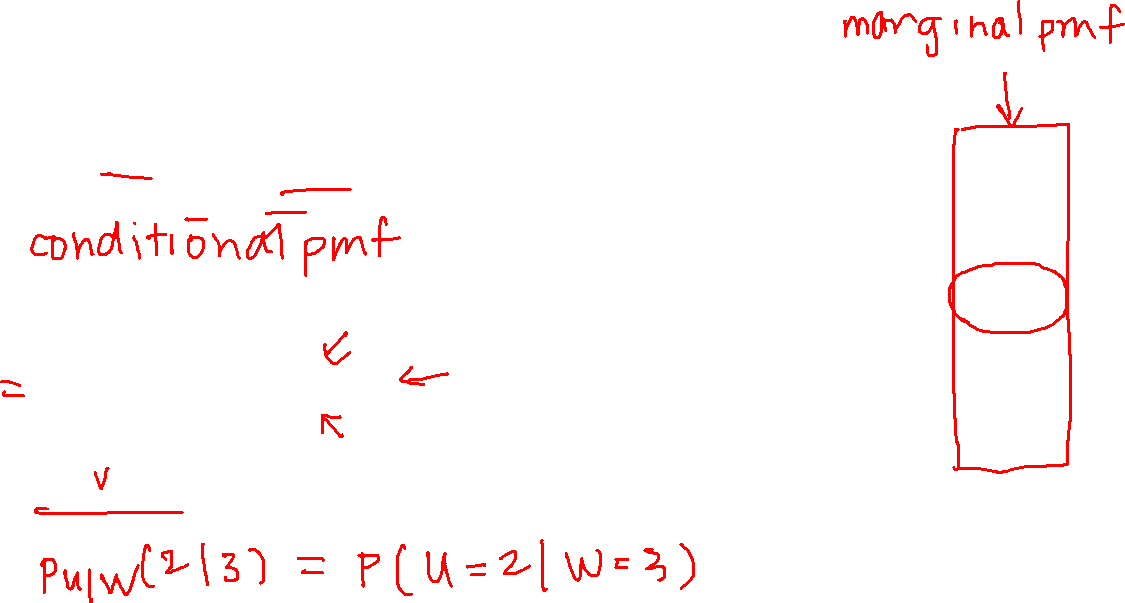 marginal pmf
conditional pmf
=
v
PU|W(2|3) = P(U=2|W=3)